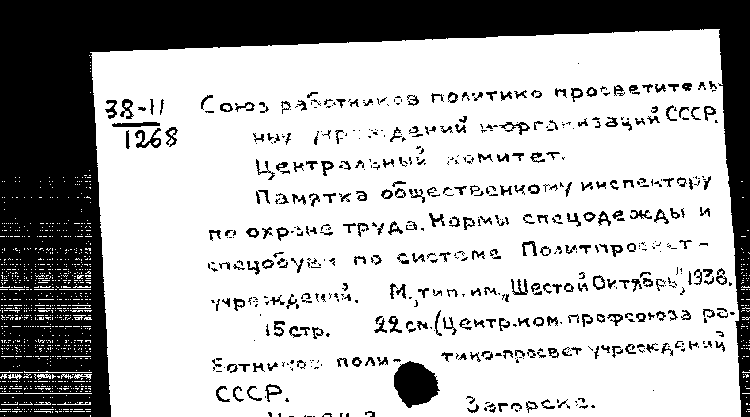 38-11
1268
Союз работников политико просветитель-
ных учреждений и организаций СССР.
Центральный комитет.
Памятка общественному инспектору
по охране труда. Нормы спецодежды и
спецобуви по системе Политпросвет-
учреждений. М., тип. им. „Шестой Октябрь", 1938.
15 стр. 22 см. (Центр. ком. профсоюза ра-
ботников поли- тико-просвет учреждений
СССР.
Загорске.